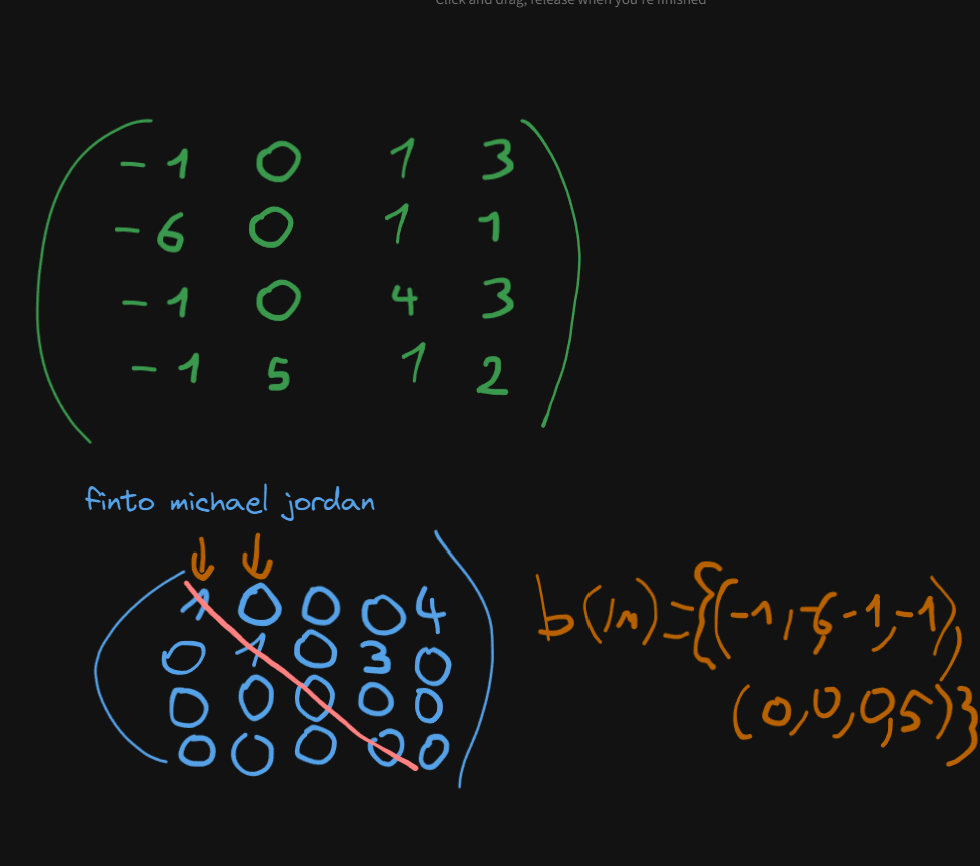 Click and drag, release when you're finished
-1 0 1 3
-6 0 1 1
-1 0 4 3
-1 5 1 2
finto michael jordan
1 0 0 0 4
0 1 0 3 0
0 0 0 0 0
0 0 0 0 0
b(Im)={(-1,-6-1,-1),
(0,0,0,5)}